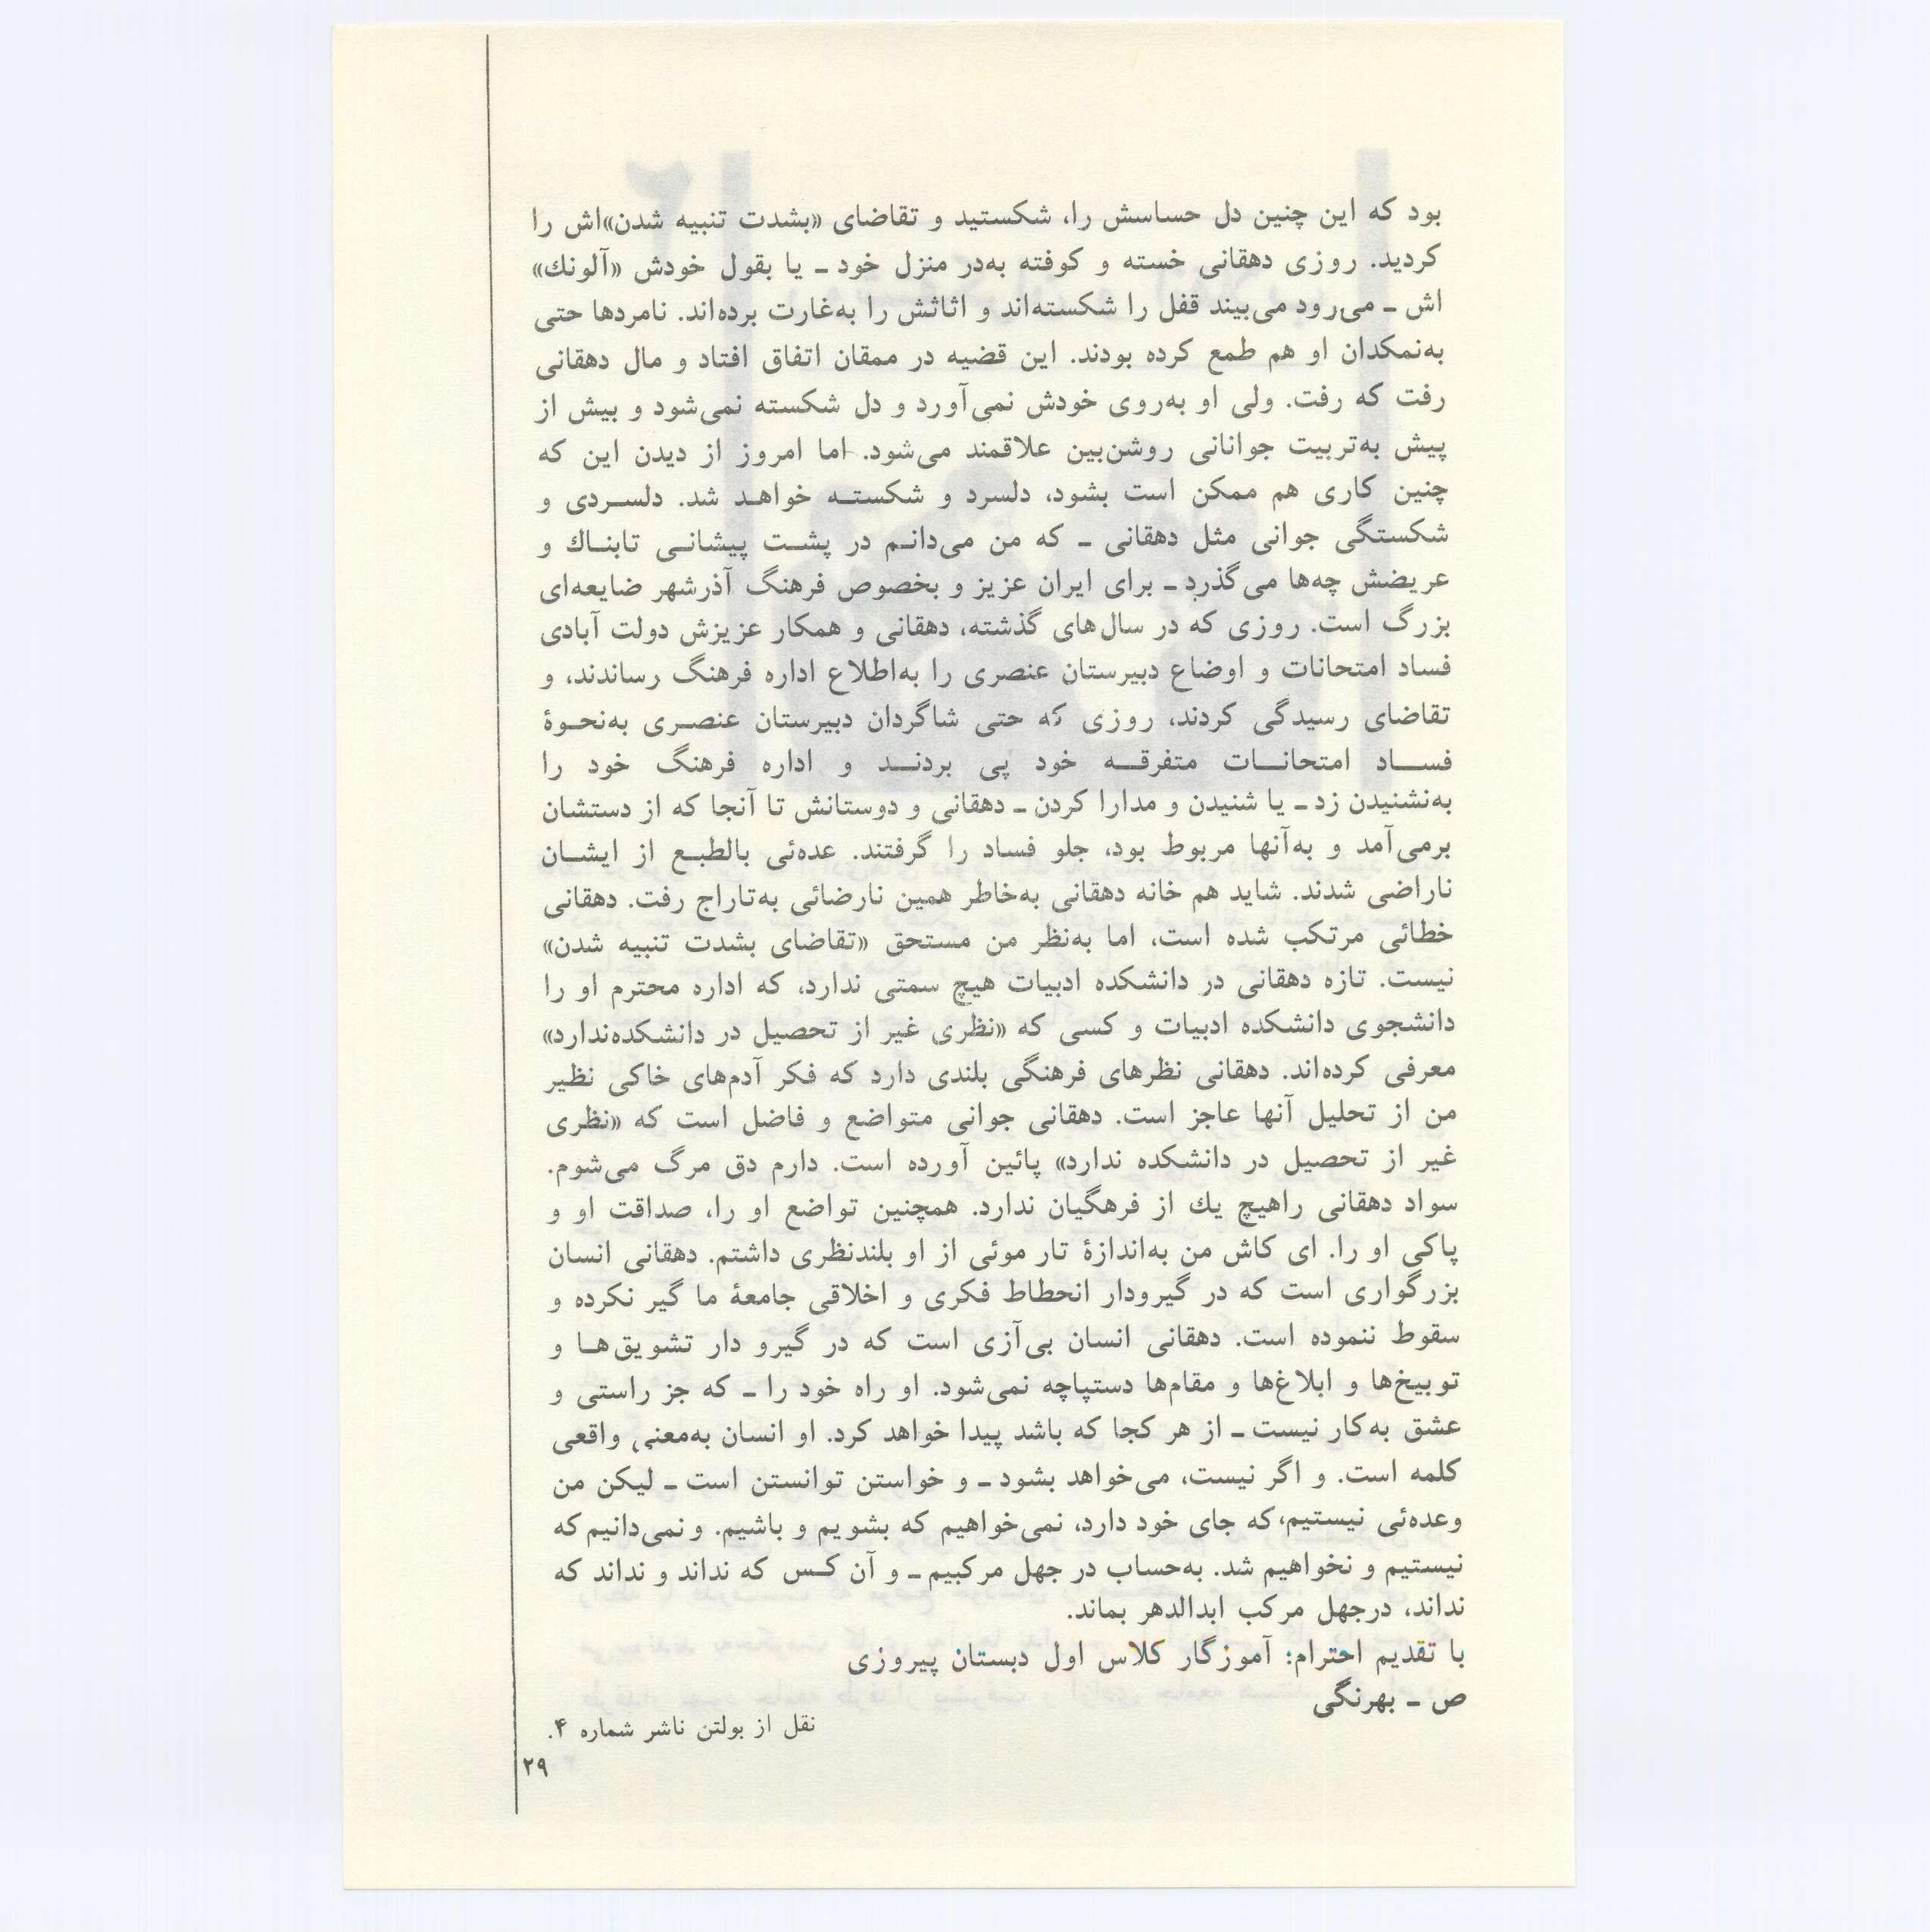 بود که این چنین دل حساسش را، شکستید و تقاضای «بشدت تنبیه شدن»اش را
کردید. روزی دهقانی خسته و کوفته به‌در منزل خود ـ یا بقول خودش «آلونك»
اش ـ می‌رود می‌بیند قفل را شکسته‌اند و اثاثش را به‌غارت برده‌اند. نامردها حتی
به‌نمکدان او هم طمع کرده بودند. این قضیه در ممقان اتفاق افتاد و مال دهقانی
رفت که رفت. ولی او به‌روی خودش نمی‌آورد و دل شکسته نمی‌شود و بیش از
پیش به‌تربیت جوانانی روشن‌بین علاقمند می‌شود. اما امروز از دیدن این که
چنین کاری هم ممکن است بشود، دلسرد و شکسته خواهد شد. دلسردی و
شکستگی جوانی مثل دهقانی ـ که من می‌دانم در پشت پیشانی تابناك و
عریضش چه‌ها می‌گذرد ـ برای ایران عزیز و بخصوص فرهنگ آذرشهر ضایعه‌ای
بزرگ است. روزی که در سال‌های گذشته، دهقانی و همکار عزیزش دولت آبادی
فساد امتحانات و اوضاع دبیرستان عنصری را به‌اطلاع اداره فرهنگ رساندند، و
تقاضای رسیدگی کردند، روزی که حتی شاگردان دبیرستان عنصری به‌نحوۀ
فساد امتحانات متفرقه خود پی بردند و اداره فرهنگ خود را
به‌نشنیدن زد ـ یا شنیدن و مدارا کردن ـ دهقانی و دوستانش تا آنجا که از دستشان
برمی‌آمد و به‌آنها مربوط بود، جلو فساد را گرفتند. عده‌ئی بالطبع از ایشان
ناراضی شدند. شاید هم خانه دهقانی به‌خاطر همین نارضائی به‌تاراج رفت. دهقانی
خطائی مرتکب شده است، اما به‌نظر من مستحق «تقاضای بشدت تنبیه شدن»
نیست. تازه دهقانی در دانشکده ادبیات هیچ سمتی ندارد، که اداره محترم او را
دانشجوی دانشکده ادبیات و کسی که «نظری غیر از تحصیل در دانشکده‌ندارد»
معرفی کرده‌اند. دهقانی نظرهای فرهنگی بلندی دارد که فکر آدم‌های خاکی نظیر
من از تحلیل آنها عاجز است. دهقانی جوانی متواضع و فاضل است که «نظری
غیر از تحصیل در دانشکده ندارد» پائین آورده است. دارم دق مرگ می‌شوم.
سواد دهقانی راهیچ یك از فرهگیان ندارد. همچنین تواضع او را، صداقت او و
پاکی او را. ای کاش من به‌اندازۀ تار موئی از او بلندنظری داشتم. دهقانی انسان
بزرگواری است که در گیرودار انحطاط فکری و اخلاقی جامعۀ ما گیر نکرده و
سقوط ننموده است. دهقانی انسان بی‌آزی است که در گیرو دار تشویق‌ها و
توبیخ‌ها و ابلاغ‌ها و مقام‌ها دستپاچه نمی‌شود. او راه خود را ـ که جز راستی و
عشق به‌کار نیست ـ از هر کجا که باشد پیدا خواهد کرد. او انسان به‌معنی واقعی
کلمه است. و اگر نیست، می‌خواهد بشود ـ و خواستن توانستن است ـ لیکن من
وعده‌ئی نیستیم،که جای خود دارد، نمی‌خواهیم که بشویم و باشیم. و نمی‌دانیم که
نیستیم و نخواهیم شد. به‌حساب در جهل مرکبیم ـ و آن کس که نداند و نداند که
نداند، درجهل مرکب ابدالدهر بماند.
با تقدیم احترام: آموزگار کلاس اول دبستان پیروزی
ص ـ بهرنگی
نقل از بولتن ناشر شماره ۴.
۲۹